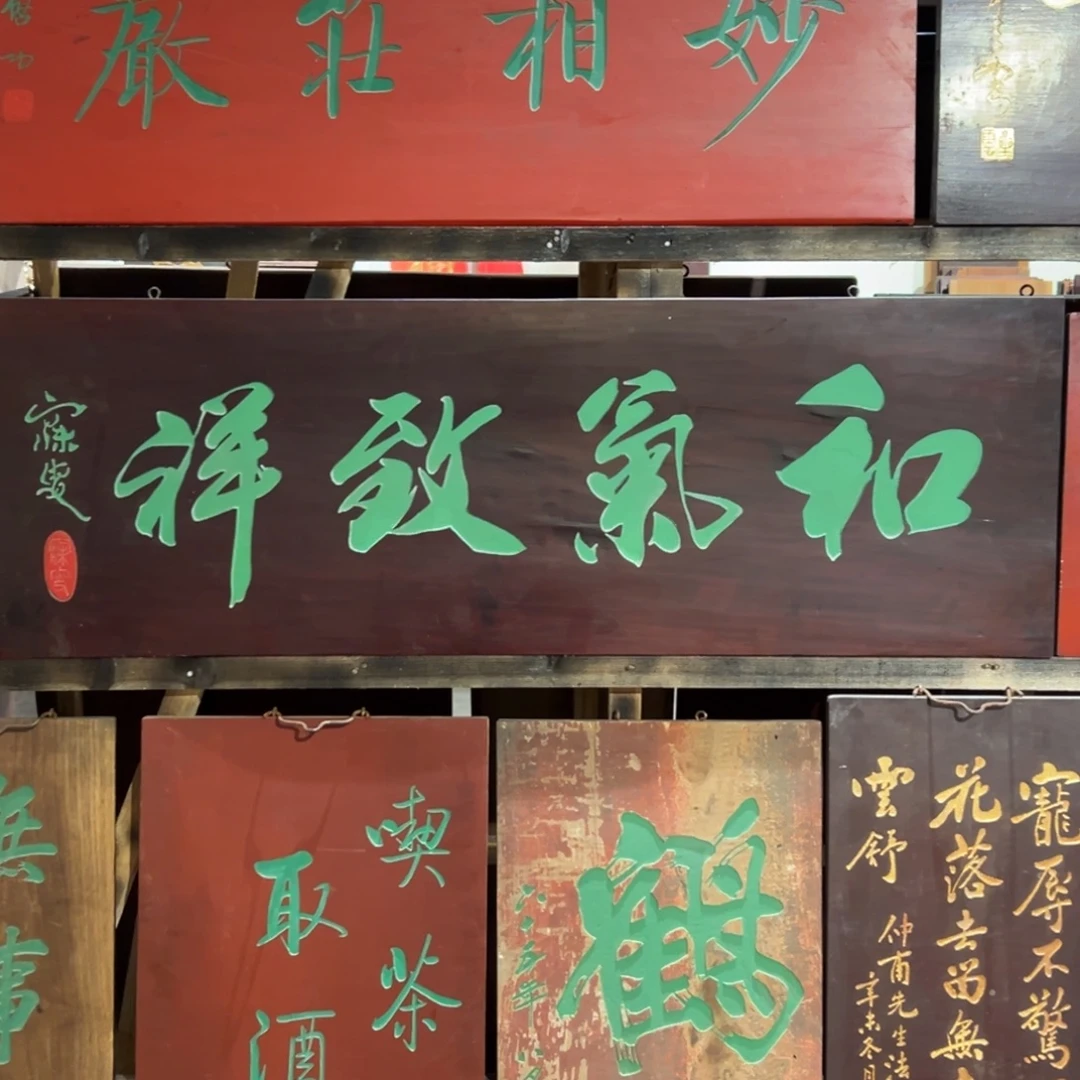 妙相莊嚴
启功
和氣致祥
寐叟
無事
喫茶
取酒
鶴
寵辱不驚
花落去留無
雲舒
仲甫先生法
辛未冬月